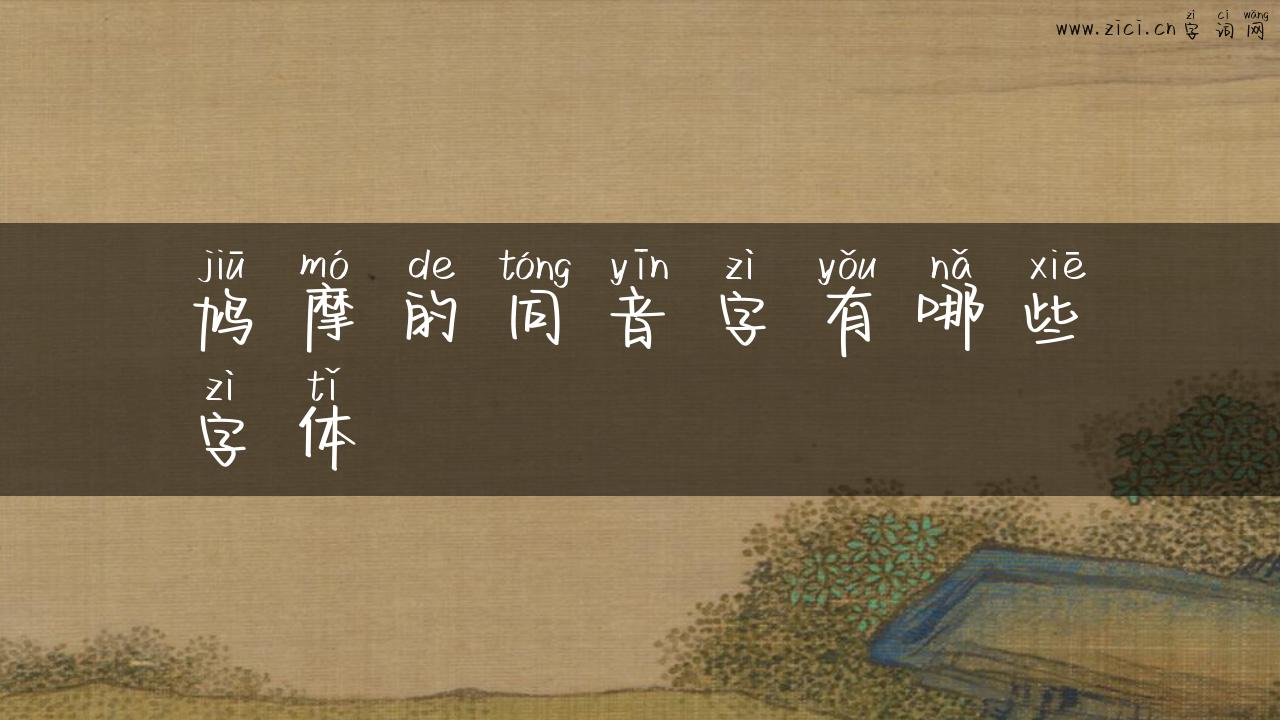 zì cí wǎng
www.zici.cn 字词网
jiū mó de tóng yīn zì yǒu nǎ xiē
鸠摩的同音字有哪些
zì tǐ
字体